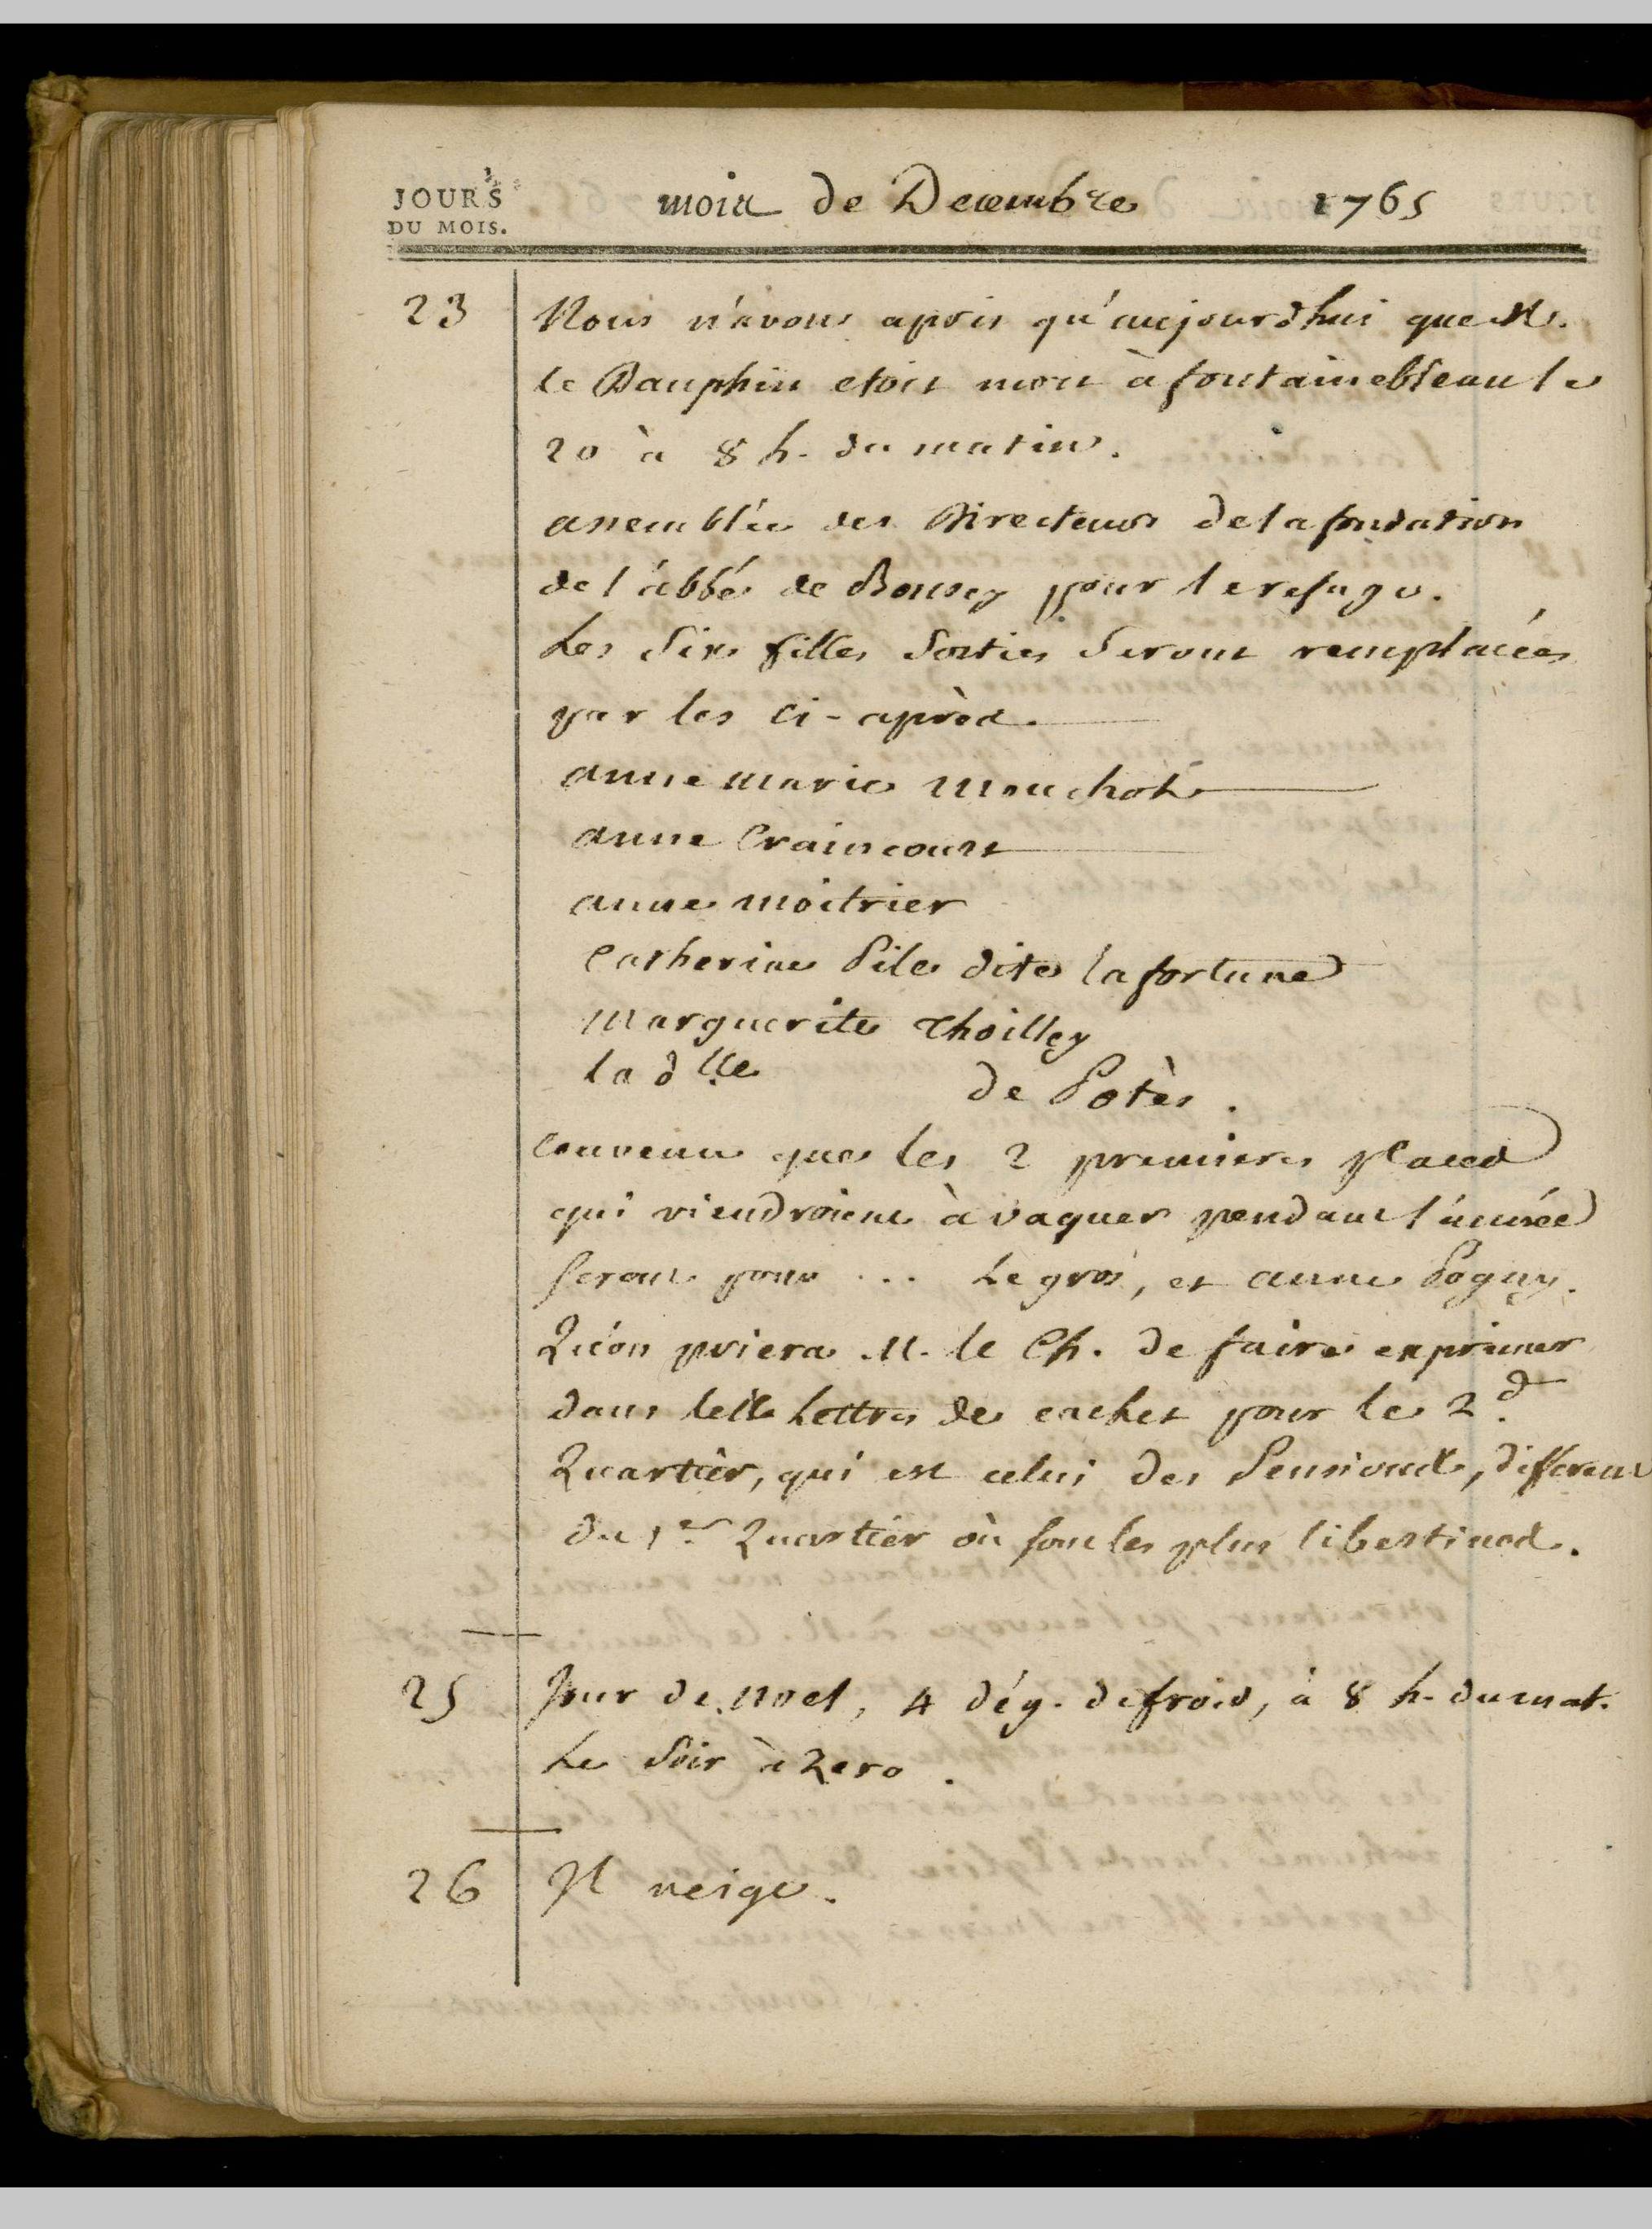 JOURS
DU MOIS.
mois de Decembre 1765
23 Nous n'avons apris qu'aujourd'hui que M.
le Dauphin etoit mort à fontainebleau le
20 à 8 h. du matin.
assemblée des Directeurs de la fondation
de l'abbé de Bousey pour le refuge.
Les Six filles Sorties Seront remplacées
par les ci-après.
anne marie Mouchot
anne Craincourt
anne moitrier
Catherine Pile dite la fortune
marguerite Thoilley
la dlle de Potès.
Convenu que les 2 premieres places
qui viendroient à vaquer pendant l'année
seront pour ... Le gros, et anne Pogny.
Qu'on priera M. le Ch. de faire exprimer
dans Lettres de cachet pour le 2.d
Quartier, qui est celui des Pensions, different
du 1.er Quartier où sont les plus libertines.
25 Jour de noel, 4 dég. de froid, à 8 h. du mat.
Le Soir à Zero.
26 Il neige.